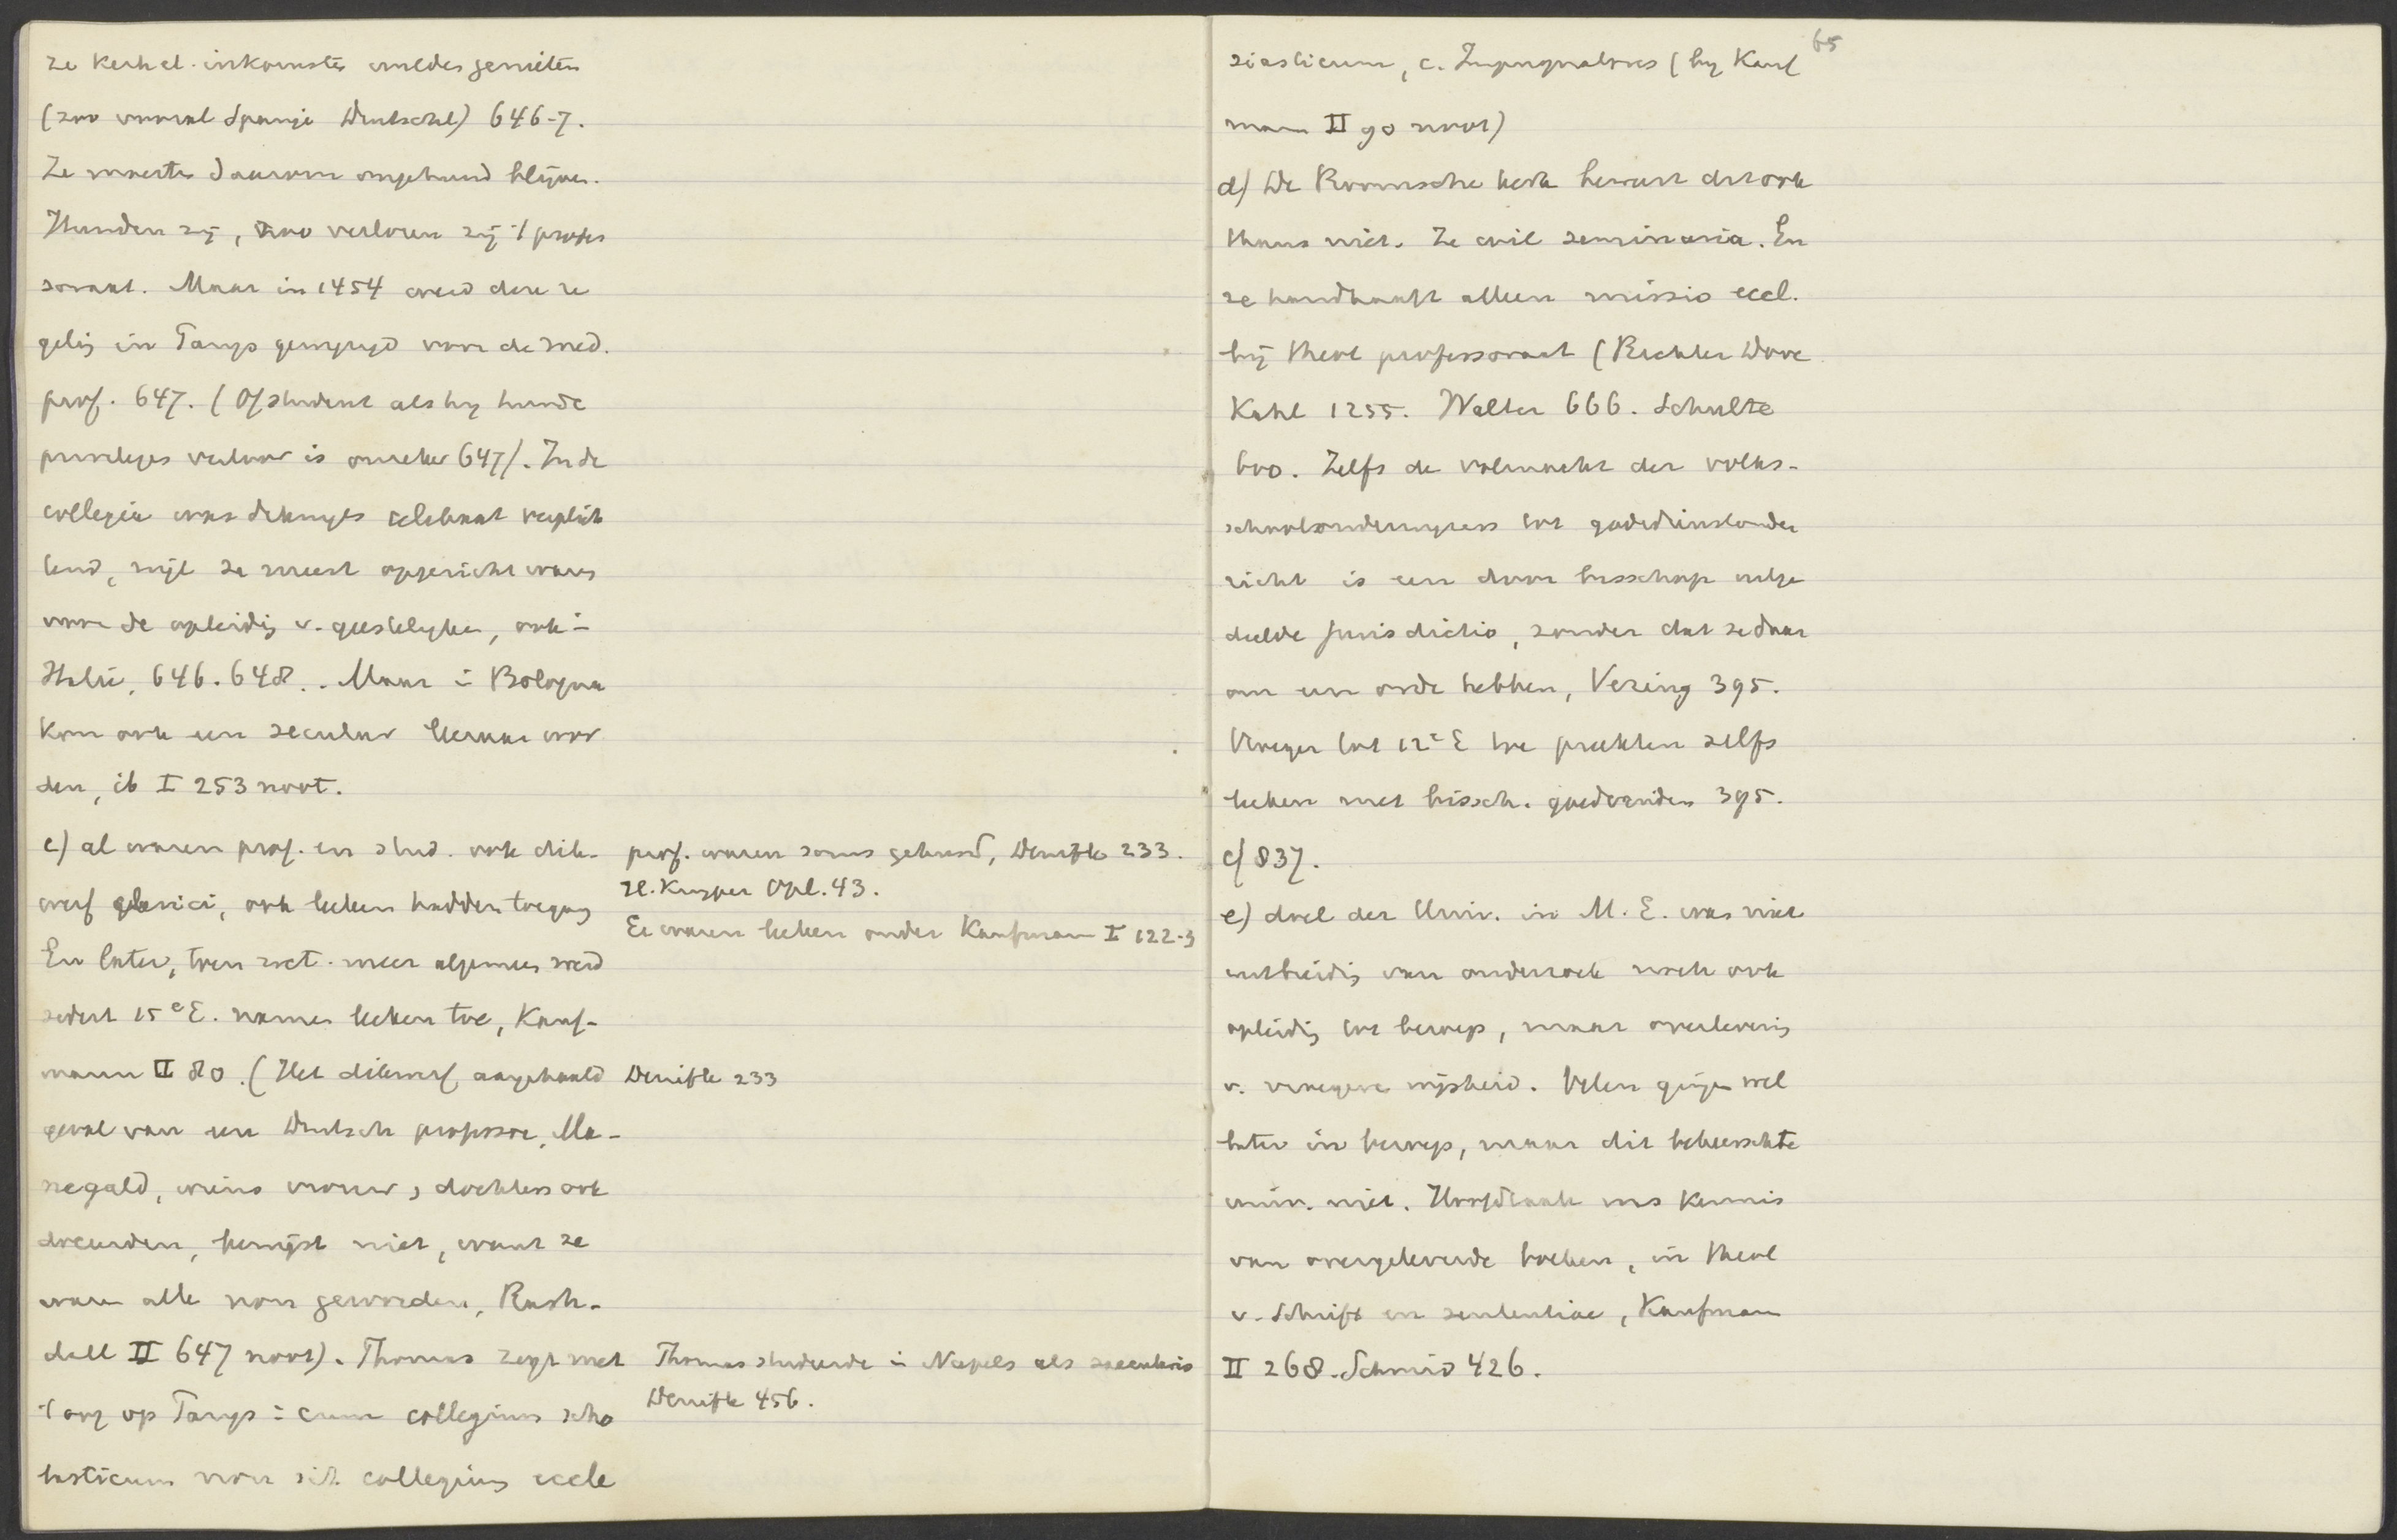 ze kerkel. inkomsten wilden genieten
(zoo vooral Spanje Duitschl) 646-7.
Ze moesten daarom ongehuwd blijven.
Huwden zij, zoo verloren zij 't profes
soraat. Maar in 1454 werd deze re
gelig in Parijs gewijzigd voor de med.
prof. 647. (Of student als hij huwde
privileges verloor is onzeker 647). In de
collegia was echter celibaat verplich
tend, wijl ze meest opgericht waren
voor de opleidig v. geestelijken, ook in
Italië, 646. 648. Maar in Bologna
kon ook een secular leeraar wor
den, ib I 253 noot.
c) al waren prof. en stud. ook dik-
werf clerici, ook leeken hadden toegang
En later, toen wet. meer algemeen werd
sedert 15e E. namen leeken toe, Kauf-
mann II 80. (Het dikwerf aangehaald
geval van een Duitsch professor, Ma-
negald, wiens vrouw, dochters ook
doceerden, bewijst niet, want ze
waren alle non geworden, Rash-
dall II 647 noot). Thomas zegt met
't oog op Parijs: cum collegium scho
lasticum non sit collegium eccle
prof. waren soms gehuwd, Denifle 233.
Kuyper Opl. 43.
Er waren leeken onder Kaufmann I 122-3
Denifle 233
Thomas studeerde in Napels als saecularis
Denifle 456.
65
siasticum, c. Impugnatores (bij Kauf
mann II 90 noot)
d) De Roomsche kerk bewust dit ook
thans niet. Ze wil seminaria. En
ze handhaaft alleen missio eccl.
bij theol professoraat (Richter Dove
Kahl 1255. Walter 666. Schulte
600. Zelfs de volmacht der volks-
schoolonderwijzers tot godsdienstonder
richt is een door bisschop medege
deelde jurisdictio, zonder dat ze daar
om een orde hebben, Vering 395.
Vroeger tot 12e E toe preekten zelfs
leeken met bissch. goedvinden 395.
cf 837.
e) doel der Univ. in M.E. was niet
uitbreidig van onderzoek noch ook
opleidig tot beroep, maar overleverig
v. vroegere wijsheid. Velen gingen wel
later in beroep, maar dit beheerschte
univ. niet. Hoofdzaak was kennis
van overgeleverde boeken, in theol
v. Schrift en sententiae, Kaufmann
II 268. Schmid 426.